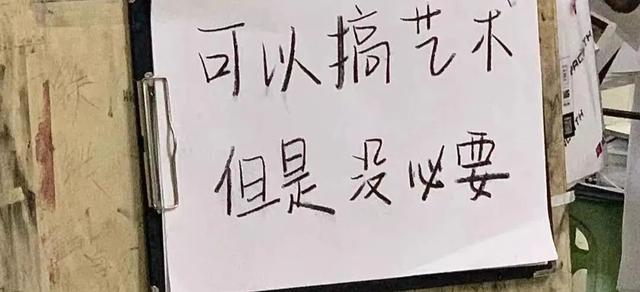 可以搞艺术
但是没必要